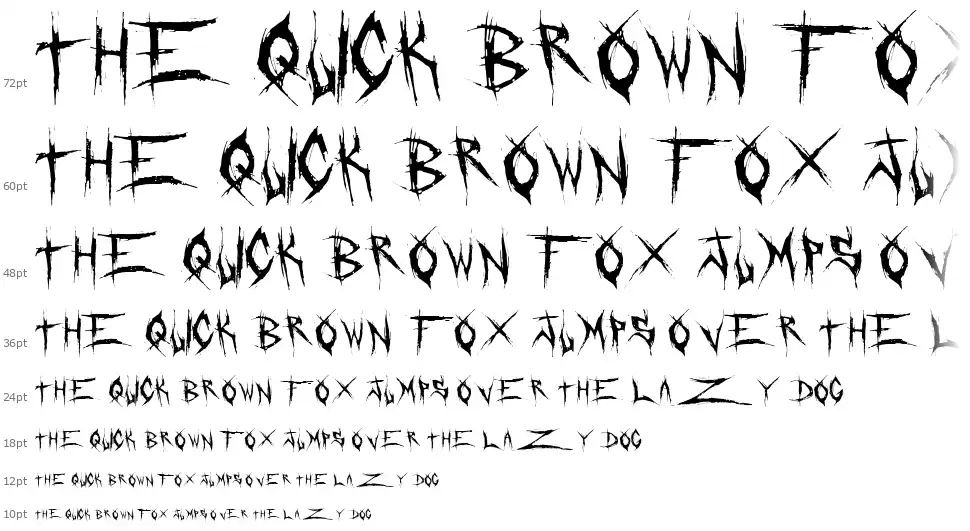 72pt THE QUICK BROWN FO
60pt THE QUICK BROWN FOX JU
48pt THE QUICK BROWN FOX JUMPS OV
36pt THE QUICK BROWN FOX JUMPS OVER THE L
24pt THE QUICK BROWN FOX JUMPS OVER THE LAZY DOG
18pt THE QUICK BROWN FOX JUMPS OVER THE LAZY DOG
12pt THE QUICK BROWN FOX JUMPS OVER THE LAZY DOG
10pt THE QUICK BROWN FOX JUMPS OVER THE LAZY DOG